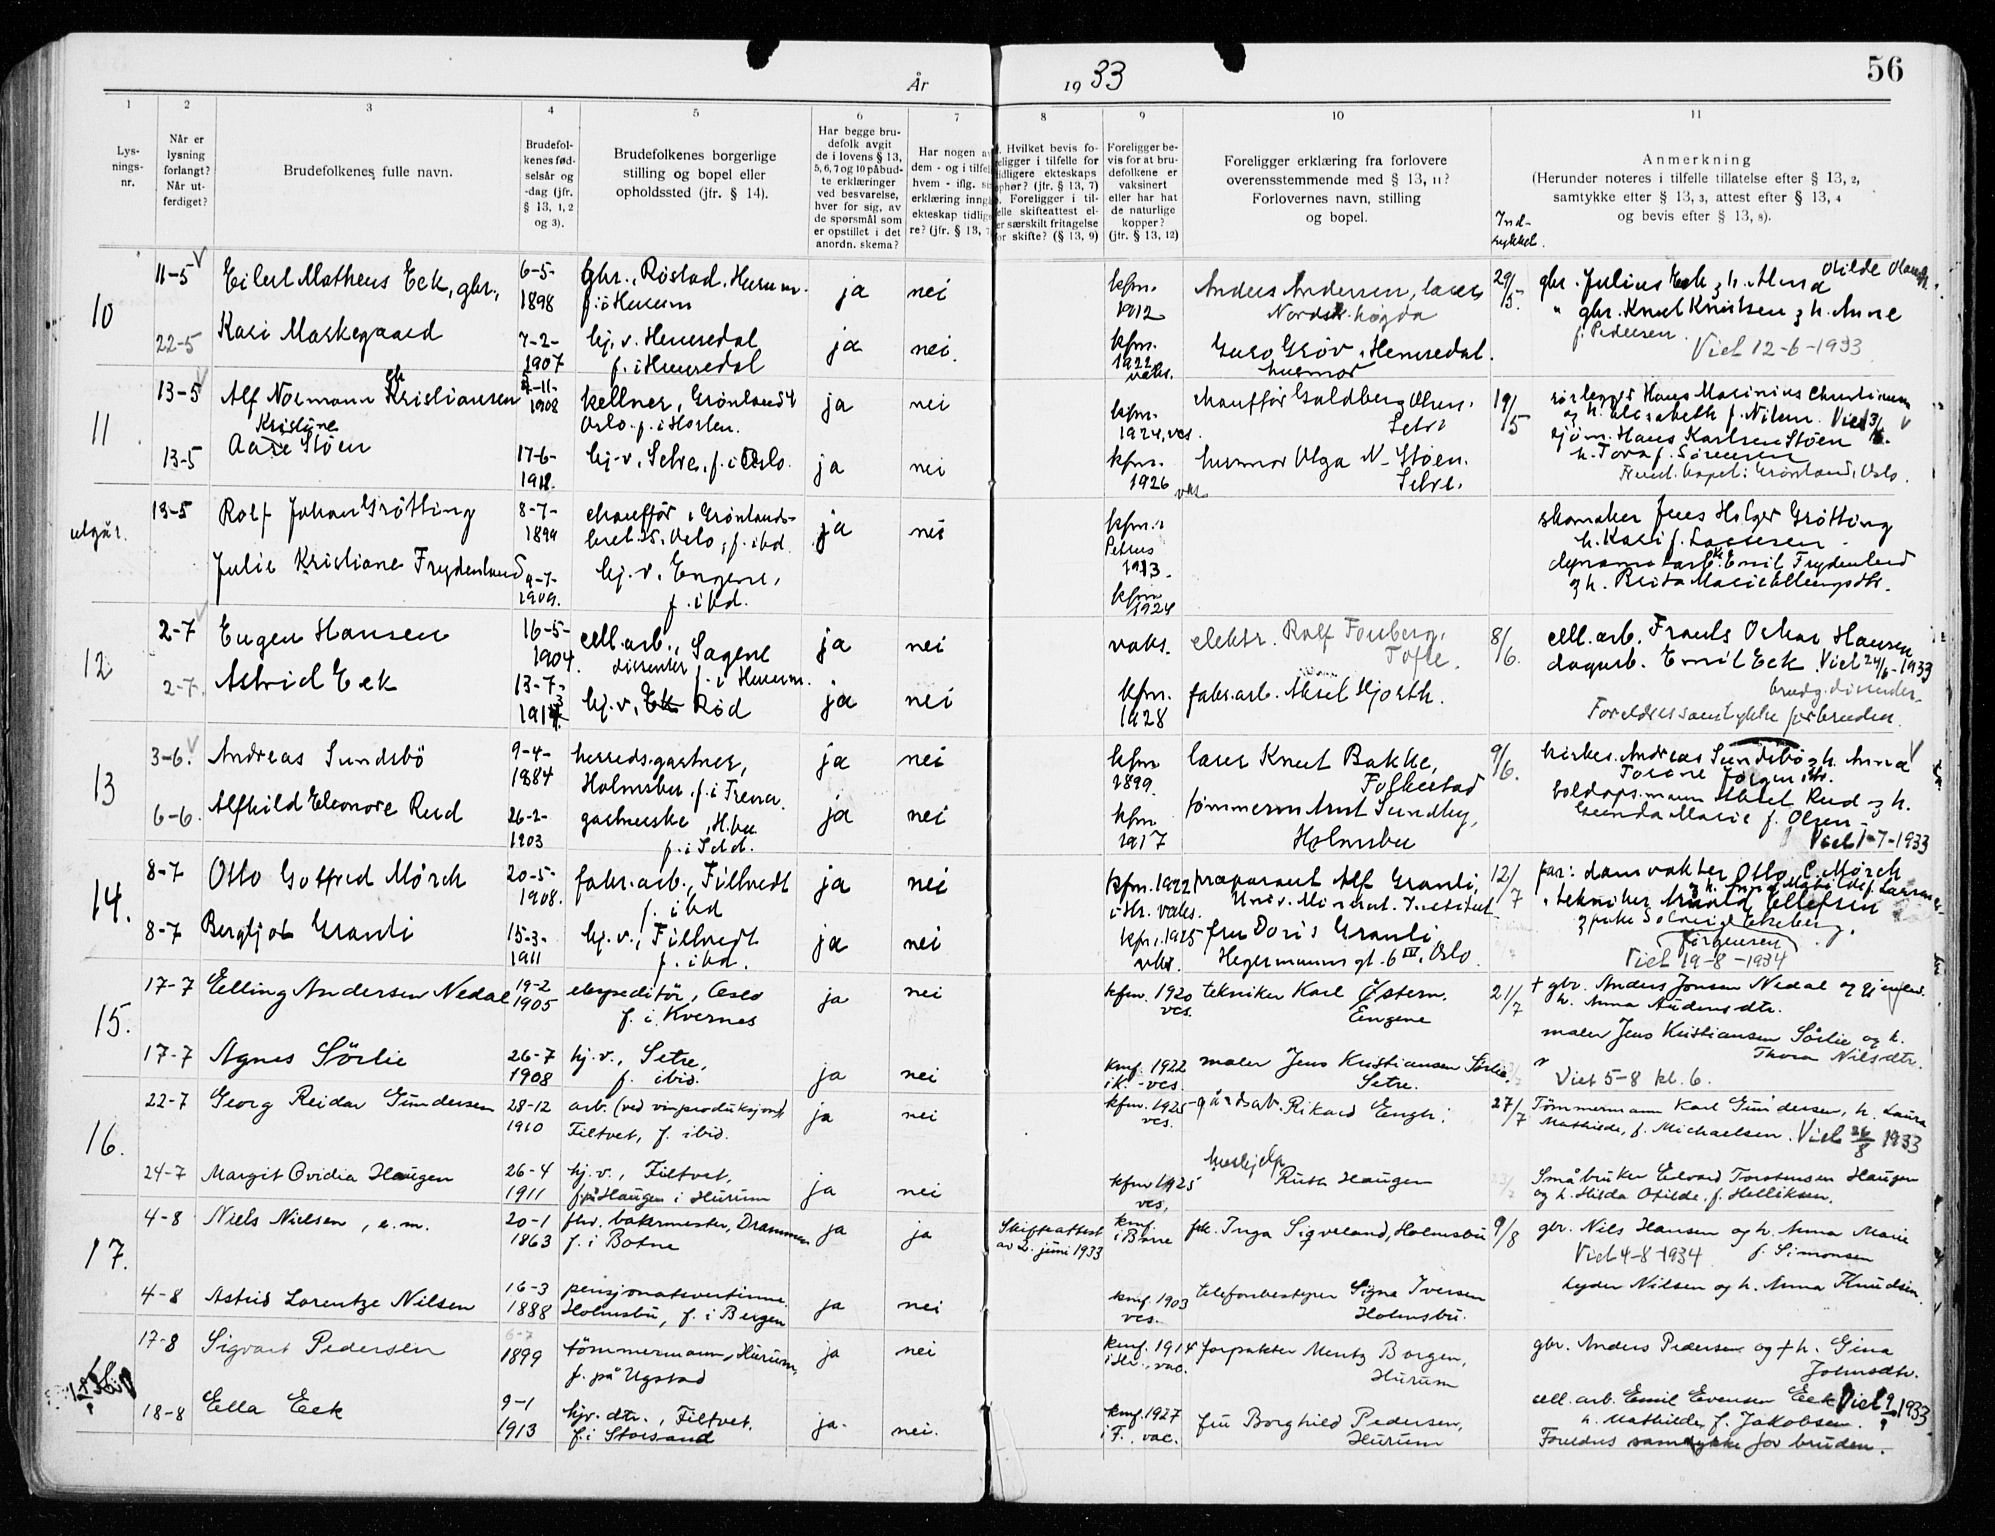 56
År 1933
1 2 3 4 5 6 7 8 9 10 11
Lys-
nings-
nr.
Når er
lysning
forlangt?
Når ut-
ferdiget?
Brudefolkenes fulle navn.
Brudefol-
kenes fød-
selsår og
-dag (jfr.
§ 13, 1, 2
og 3).
Brudefolkenes borgerlige
stilling og bopel eller
opholdssted (jfr. § 14).
Har begge bru-
defolk avgit
de i lovens § 13,
5, 6, 7 og 10 påbud-
te erklæringer
ved besvarelse,
hver for sig, av
de spørsmål som
er opstillet i det
anordn. skema?
Har nogen av
dem - og i tilfel
hvem - iflg. si
erklæring inngå
ekteskap tidlig
re? (jfr. § 13, 7
Hvilket bevis fo-
religger i tilfelle for
tidligere ekteskaps
ophør? (jfr. § 13, 7)
Foreligger i til-
felle skifteattest el-
er særskilt fritagelse
or skifte? (§ 13, 9)
Foreligger be-
vis for at bru-
defolkene er
vaksinert
eller har hat
de naturlige
kopper?
(jfr. § 13, 12)
Foreligger erklæring fra forlovere
overensstemmende med § 13, 11?
Forlovernes navn, stilling
og bopel.
Anmerkning
(Herunder noteres i tilfelle tillatelse efter § 13, 2,
samtykke efter § 13, 3, attest efter § 13, 4
og bevis efter § 13, 8).
10
11-5 Eilert Matheus Eek, gbr., 6-5-1898 gbr., Røstad, Hurum f. i Hurum ja nei kfm. 1912 Anders Andersen, lærer 29/5 gbr. Julius Eek & h. Alma
Kari Markegaard 7-2-1907 hj. v. Hemsedal f. i Hemsedal ja nei. kfm. 1922 vaks. Guro Grøv, Hemsedal. husmor " gbr. Knut Knutsen & h. Anne f. Pedersen.
22-5 Viet 12-6-1933
11
13-5 Alf Normann Kristiansen 11-1908 kellner, Grønland 4 Oslo. f. i Horten. ja nei kfm. 1924, vcs. chauffør Goldberg Olsen, Setre 19/5 rørlegger Hans Marinius Christiansen og h. Elisabeth f. Nilsen. Viet
13-5 Kristine Aase Støen 17-6-1912. hj. v., Setre, f. i Oslo. ja nei kfm. 1926 vaks husmor Olga N. Støen. Setre. sjøm. Hans Karlsen Støen h. Tora f. Sørensen
Grønland, Oslo.
utgår.
13-5 Rolf Johan Grøtting 8-7-1899 chauffør, Grønlands- Oslo, f. ibd. ja nei kfm. i Petrus 1913. skomaker Jens Holger Grøtting h. Kari f. Larsen
Julie Kristiane Frydenlund 9-7-1909. hj. v. Engene, f. ibd. kfm 1924 dynamitarb. Emil Frydenlund & h. Berta Marie Ellingsdtr.
12
2-7 Eugen Hansen 16-5-1904. cell. arb., Sagene dissenter f. i Hurum. ja nei vaks. elektr. Rolf Forberg, Tofte. 8/6. cell. arb. Frants Oskar Hansen
2-7. Astrid Eek 13-7-191 hj. v., Rød ja nei kfm. 1928 fabr. arb. Aksel Hjorth. dagarb. Emil Eek. Viet 24/6-1933
brudg. dissenter
Foreldres samtykke for bruden.
13
3-6. Andreas Sundsbö 9-4-1884 herredsgartner, Holmsbu, f. i Fræna. ja nei kfm 1899. lærer Knut Bakke, Folkestad 9/6. kirkes. Andreas Sundsbö & h. Anna
6-6. Alfhild Eleonore Rud 26-2-1903 gartnerske, H.bu f. i Sdd. ja nei kfm 1917 tømmerm Arnt Sundby, Holmsbu Rud & h. Gunda Marie f. Olsen.
Viet 1-7-1933
14.
8-7 Otto Gotfred Mørch 20-5-1908. fabr. arb., Filtvedt f. ibd ja nei kfm. 1922 i Hr. vaks. præparant Alf Granli, Univ. Mineral. Institut 12/7 far: damvokter Otto C. Mørch
8-7 Bergljot Granli 15-3-1911 hj. v., Filtvedt f. ibd. ja nei kfm. 1925 vaks. fru Doris Granli Hegermanns gt. 6 IV, Oslo. " tekniker Arnold Ellefsen
Jörgensen
Viet 19-8-1934
15.
17-7 Elling Andersen Nedal 19-2 1905 ekspeditör, Oslo f. i Kvernes ja nei kfm. 1920 vcs. tekniker Karl Östern. Engene 21/7 + gbr. Anders Jonsen Nedal og gjenlev. h. Anna Andersdtr.
17-7 Agnes Sörlie 26-7 1908 hj. v., Setre, f. ibid. ja nei kmf. 1922 ik. - vcs. maler Jens Kristiansen Sörlie, Setre. maler Jens Kristiansen Sörlie og h. Thora Nilsdtr.
Viet 5-8 kl. 6.
16.
22-7 Georg Reidar Gundersen 28-12 1910 arb. (ved vinproduksjon) Filtvet, f. ibid. ja nei kfm. 1925 vcs. gårdsarb. Rikard Engh. 27/7 Tömmermann Karl Gundersen, h. Laura Mathilde, f. Michaelsen. Viet 26/8 1933
24-7 Margit Ovidia Haugen 26-4 1911 hj. v., Filtvet, f. på Haugen i Hurum ja nei kfm 1925 vcs, hushjelp Ruth Haugen Småbruker Edvard Torstensen Haugen og h. Hilda Otilde, f. Helliksen.
17.
4-8 Niels Nielsen, e.m. 20-1 1863 fhv. bakermester, Drammen f. i Botne ja ja Skifteattest av 2. juni 1933 kmf. i Borre frk. Inga Sigveland, Holmsbu 9/8 gbr. Nils Hansen og h. Anna Marie f. Simonsen
Viet 4-8-1934
4-8 Astrid Lorentze Nilsen 16-3 1888 pensjonatvertinne Holmsbu, f. i Bergen ja nei kmf. 1903 vcs. telefonbestyrer Signe Iversen Holmsbu. Lyder Nilsen og h. Anna Knudsen.
17-8 Sigvart Pedersen 6-7 1899 tömmermann, Hurum, f. på Ugstad ja nei kmf. 1914 i Hr., vac. forpakter Mentz Borgen, Hurum gbr. Anders Pedersen og + h. Gina Johnsdtr.
18-8 Ella Eek 9-1 1913 hjv. dtr., Filtvet, f. i Storsand ja. nei. kmf. 1927 i F., vac. fru Borghild Pedersen, Hurum cell. arb. Emil Evensen Eek Viet 1933
h. Mathilde, f. Jakobsen.
Foreldres samtykke for bruden.